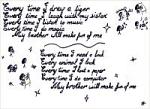 Every time I draw a tiger
Every time I laugh with my sister
Every time I listen to music
Every time I do magic
My brother will make fun of me
Every time I need a
Every animal I
Every time I a paper
Every time I do computer
My brother will make fun of me